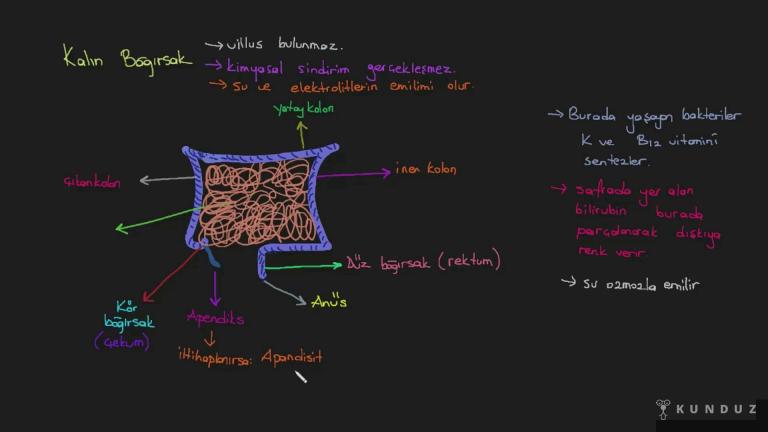 Kalın Bağırsak
→ villus bulunmaz.
→ kimyasal sindirim gerçekleşmez.
→ su ve elektrolitlerin emilimi olur.
yatay kolon
çıkan kolon
inen kolon
Düz bağırsak (rektum)
Anüs
Kör
bağırsak
(çekum)
Apendiks
iltihaplanırsa: Apandisit
→ Burada yaşayan bakteriler
K ve B12 vitamini
sentezler.
→ safrada yer alan
bilirubin burada
parçalanarak dışkıya
renk verir.
→ su ozmozla emilir
KUNDUZ